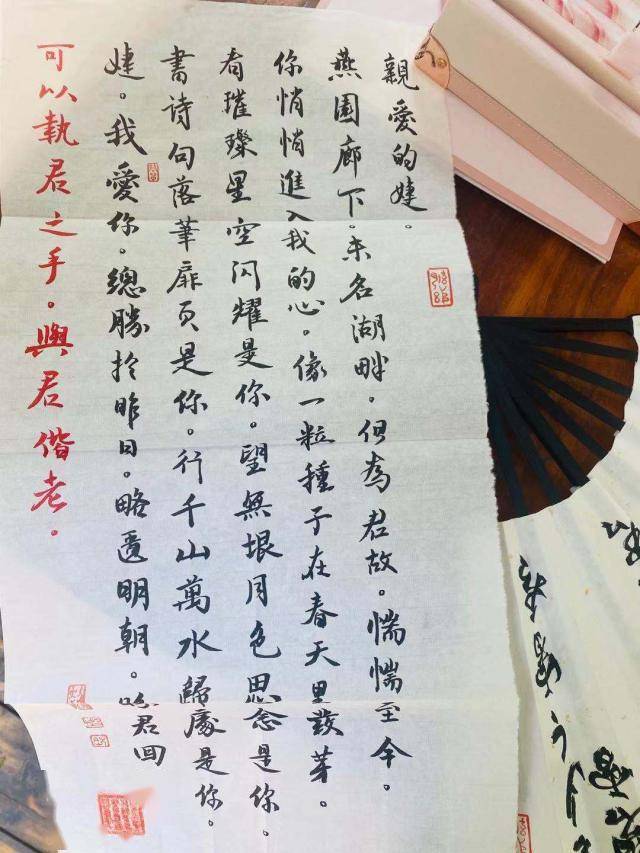 親愛的婕。
燕園廊下。未名湖畔。但為君故。惴惴至今。
你悄悄進入我的心。像一粒種子在春天里發芽。
看璀璨星空閃耀是你。望無垠月色思念是你。
書詩句落筆扉頁是你。行千山萬水歸處是你。
婕。我愛你。總勝於昨日。略遜明朝。君回
可以執君之手。與君偕老。